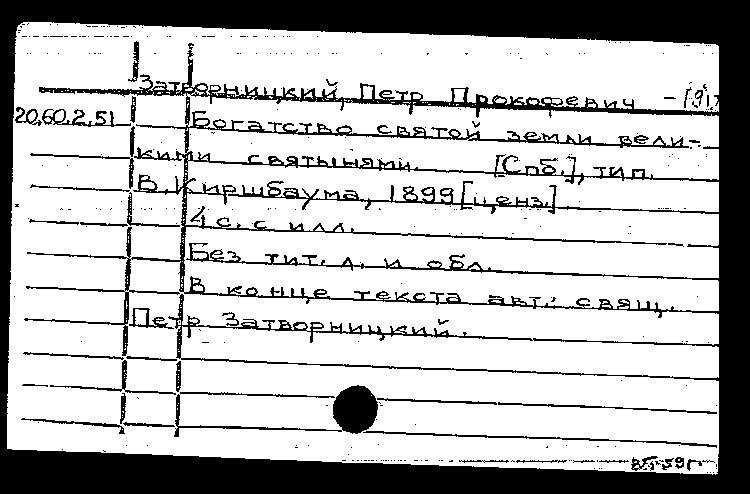 Затворницкий, Петр Прокофевич
20.60.2.51 Богатство святой земли вели-
кими святынями. [Спб.], тип.
В. Киршбаума, 1899 [ценз.]
4 с. с илл.
Без тит. л. и обл.
В конце текста авт.: свящ.
Петр Затворницкий.